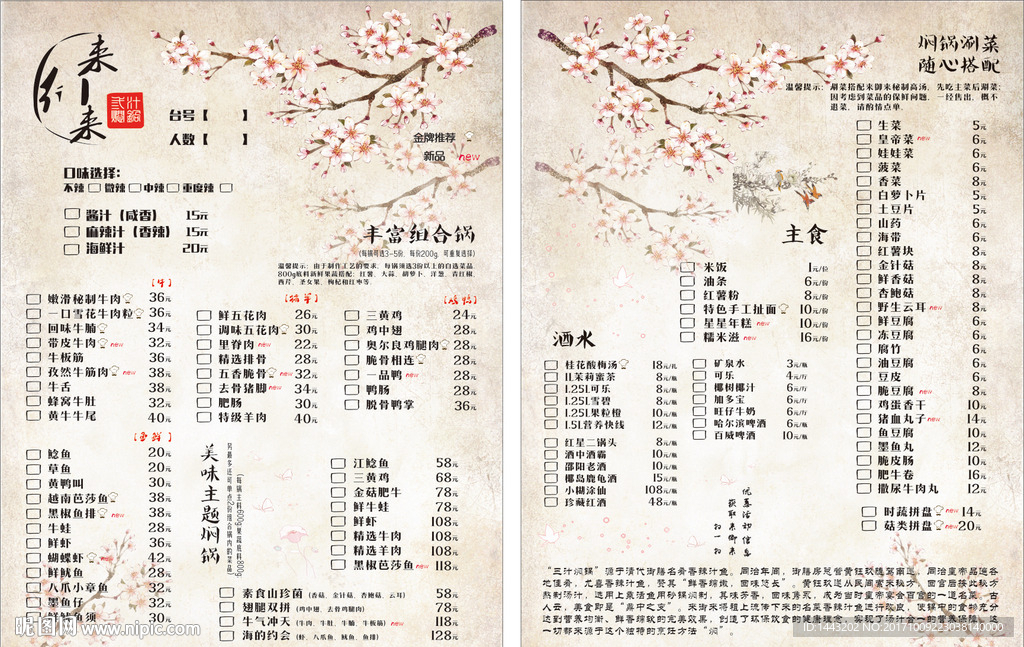 来
御
来
三汁焖锅
台号【 】
人数【 】
金牌推荐
新品 new
口味选择:
不辣 微辣 中辣 重度辣
酱汁（咸香） 15元
麻辣汁（香辣） 15元
海鲜汁 20元
丰富组合锅
(每锅可选3-5份, 每份200g, 可重复选择)
温馨提示: 由于制作工艺的要求, 每锅须选3份以上的自选菜品,
800g底料新鲜果蔬搭配: 红薯、大蒜、胡萝卜、洋葱、青红椒、
西芹、圣女果、枸杞和红枣等。
【牛】
嫩滑秘制牛肉 36元
一口雪花牛肉粒 36元
回味牛腩 34元
带皮牛肉 new 32元
牛板筋 36元
孜然牛筋肉 new 38元
牛舌 38元
蜂窝牛肚 32元
黄牛牛尾 40元
【猪羊】
鲜五花肉 26元
调味五花肉 30元
里脊肉 new 22元
精选排骨 28元
五香脆骨 new 32元
去骨猪脚 new 34元
肥肠 30元
特级羊肉 40元
【鸡鸭】
三黄鸡 24元
鸡中翅 28元
奥尔良鸡腿肉 28元
脆骨相连 28元
一品鸭 new 28元
鸭肠 28元
脱骨鸭掌 36元
【河鲜】
鲶鱼 20元
草鱼 20元
黄鸭叫 30元
越南芭莎鱼 38元
黑椒鱼排 new 38元
牛蛙 28元
鲜虾 36元
蝴蝶虾 new 42元
鲜鱿鱼 28元
八爪小章鱼 32元
墨鱼仔 32元
鲜鱿鱼须 30元
美味主题焖锅
(每锅主料600g果蔬底料800g,
另最多还可单点2份组合锅内的菜品)
江鲶鱼 58元
三黄鸡 68元
金菇肥牛 78元
鲜牛蛙 78元
鲜虾 108元
精选牛肉 108元
精选羊肉 108元
黑椒芭莎鱼 new 118元
素食山珍菌 (香菇、金针菇、杏鲍菇、云耳) 58元
翅腿双拼 (鸡中翅、去骨鸡腿肉) 78元
牛气冲天 (牛肉、牛肚、牛腩、牛板筋) new 118元
海的约会 (虾、八爪鱼、鱿鱼、鱼排) 128元
焖锅涮菜
随心搭配
温馨提示: 涮菜搭配来御来秘制高汤, 先吃主菜后涮菜;
因考虑到菜品的保鲜问题, 一经售出, 概不
退菜, 请酌情点单。
生菜 5元
皇帝菜 new 6元
娃娃菜 6元
菠菜 6元
香菜 8元
白萝卜片 5元
土豆片 5元
山药 6元
海带 6元
红薯块 8元
金针菇 8元
鲜香菇 8元
杏鲍菇 8元
野生云耳 new 8元
鲜豆腐 6元
冻豆腐 6元
腐竹 6元
油豆腐 6元
豆皮 6元
脆豆腐 new 8元
鸡蛋香干 10元
猪血丸子 new 14元
鱼豆腐 10元
墨鱼丸 12元
脆皮肠 10元
肥牛卷 16元
撒尿牛肉丸 12元
时蔬拼盘 new 14元
菇类拼盘 new 20元
主食
米饭 1元/位
油条 6元/份
红薯粉 8元/份
特色手工扯面 10元/份
星星年糕 new 10元/份
糯米滋 new 16元/份
酒水
桂花酸梅汤 18元/扎
1L茉莉蜜茶 8元/瓶
1.25L可乐 8元/瓶
1.25L雪碧 8元/瓶
1.25L果粒橙 10元/瓶
1.5L营养快线 12元/瓶
红星二锅头 8元/瓶
酒中酒霸 10元/瓶
邵阳老酒 10元/瓶
椰岛鹿龟酒 15元/瓶
小糊涂仙 108元/瓶
珍藏红酒 48元/瓶
矿泉水 3元/瓶
可乐 4元/厅
椰树椰汁 6元/厅
加多宝 6元/厅
旺仔牛奶 6元/厅
哈尔滨啤酒 6元/瓶
百威啤酒 10元/瓶
优惠活动信息
获取来御来
扫一扫
“三汁焖锅”源于清代御膳名肴香辣汁鱼。同治年间, 御膳房总管黄钰玫随驾南巡, 同治皇帝品遍各
地佳肴, 尤喜香辣汁鱼, 赞其“鲜香绵嫩, 回味悠长”。黄钰玫遂从民间寻来秘方, 回宫后按此秘方
熬制汤汁, 选用上泉活鱼用砂锅焖制, 其味芬香、回味隽永, 成为当时皇帝宴会百官的一道名菜。古
人云, 美食即是“鼎中之变”。来御来将祖上流传下来的名菜香辣汁鱼进行改良, 使锅中的食物充分
达到营养均衡、鲜香绵软的完美效果, 创造了环保饮食的健康理念, 实现了汤汁合一的营养保障, 这
一切都来源于这个独特的烹饪方法“焖”。
昵图网 www.nipic.com
ID:1443202 NO:20171009223038140000